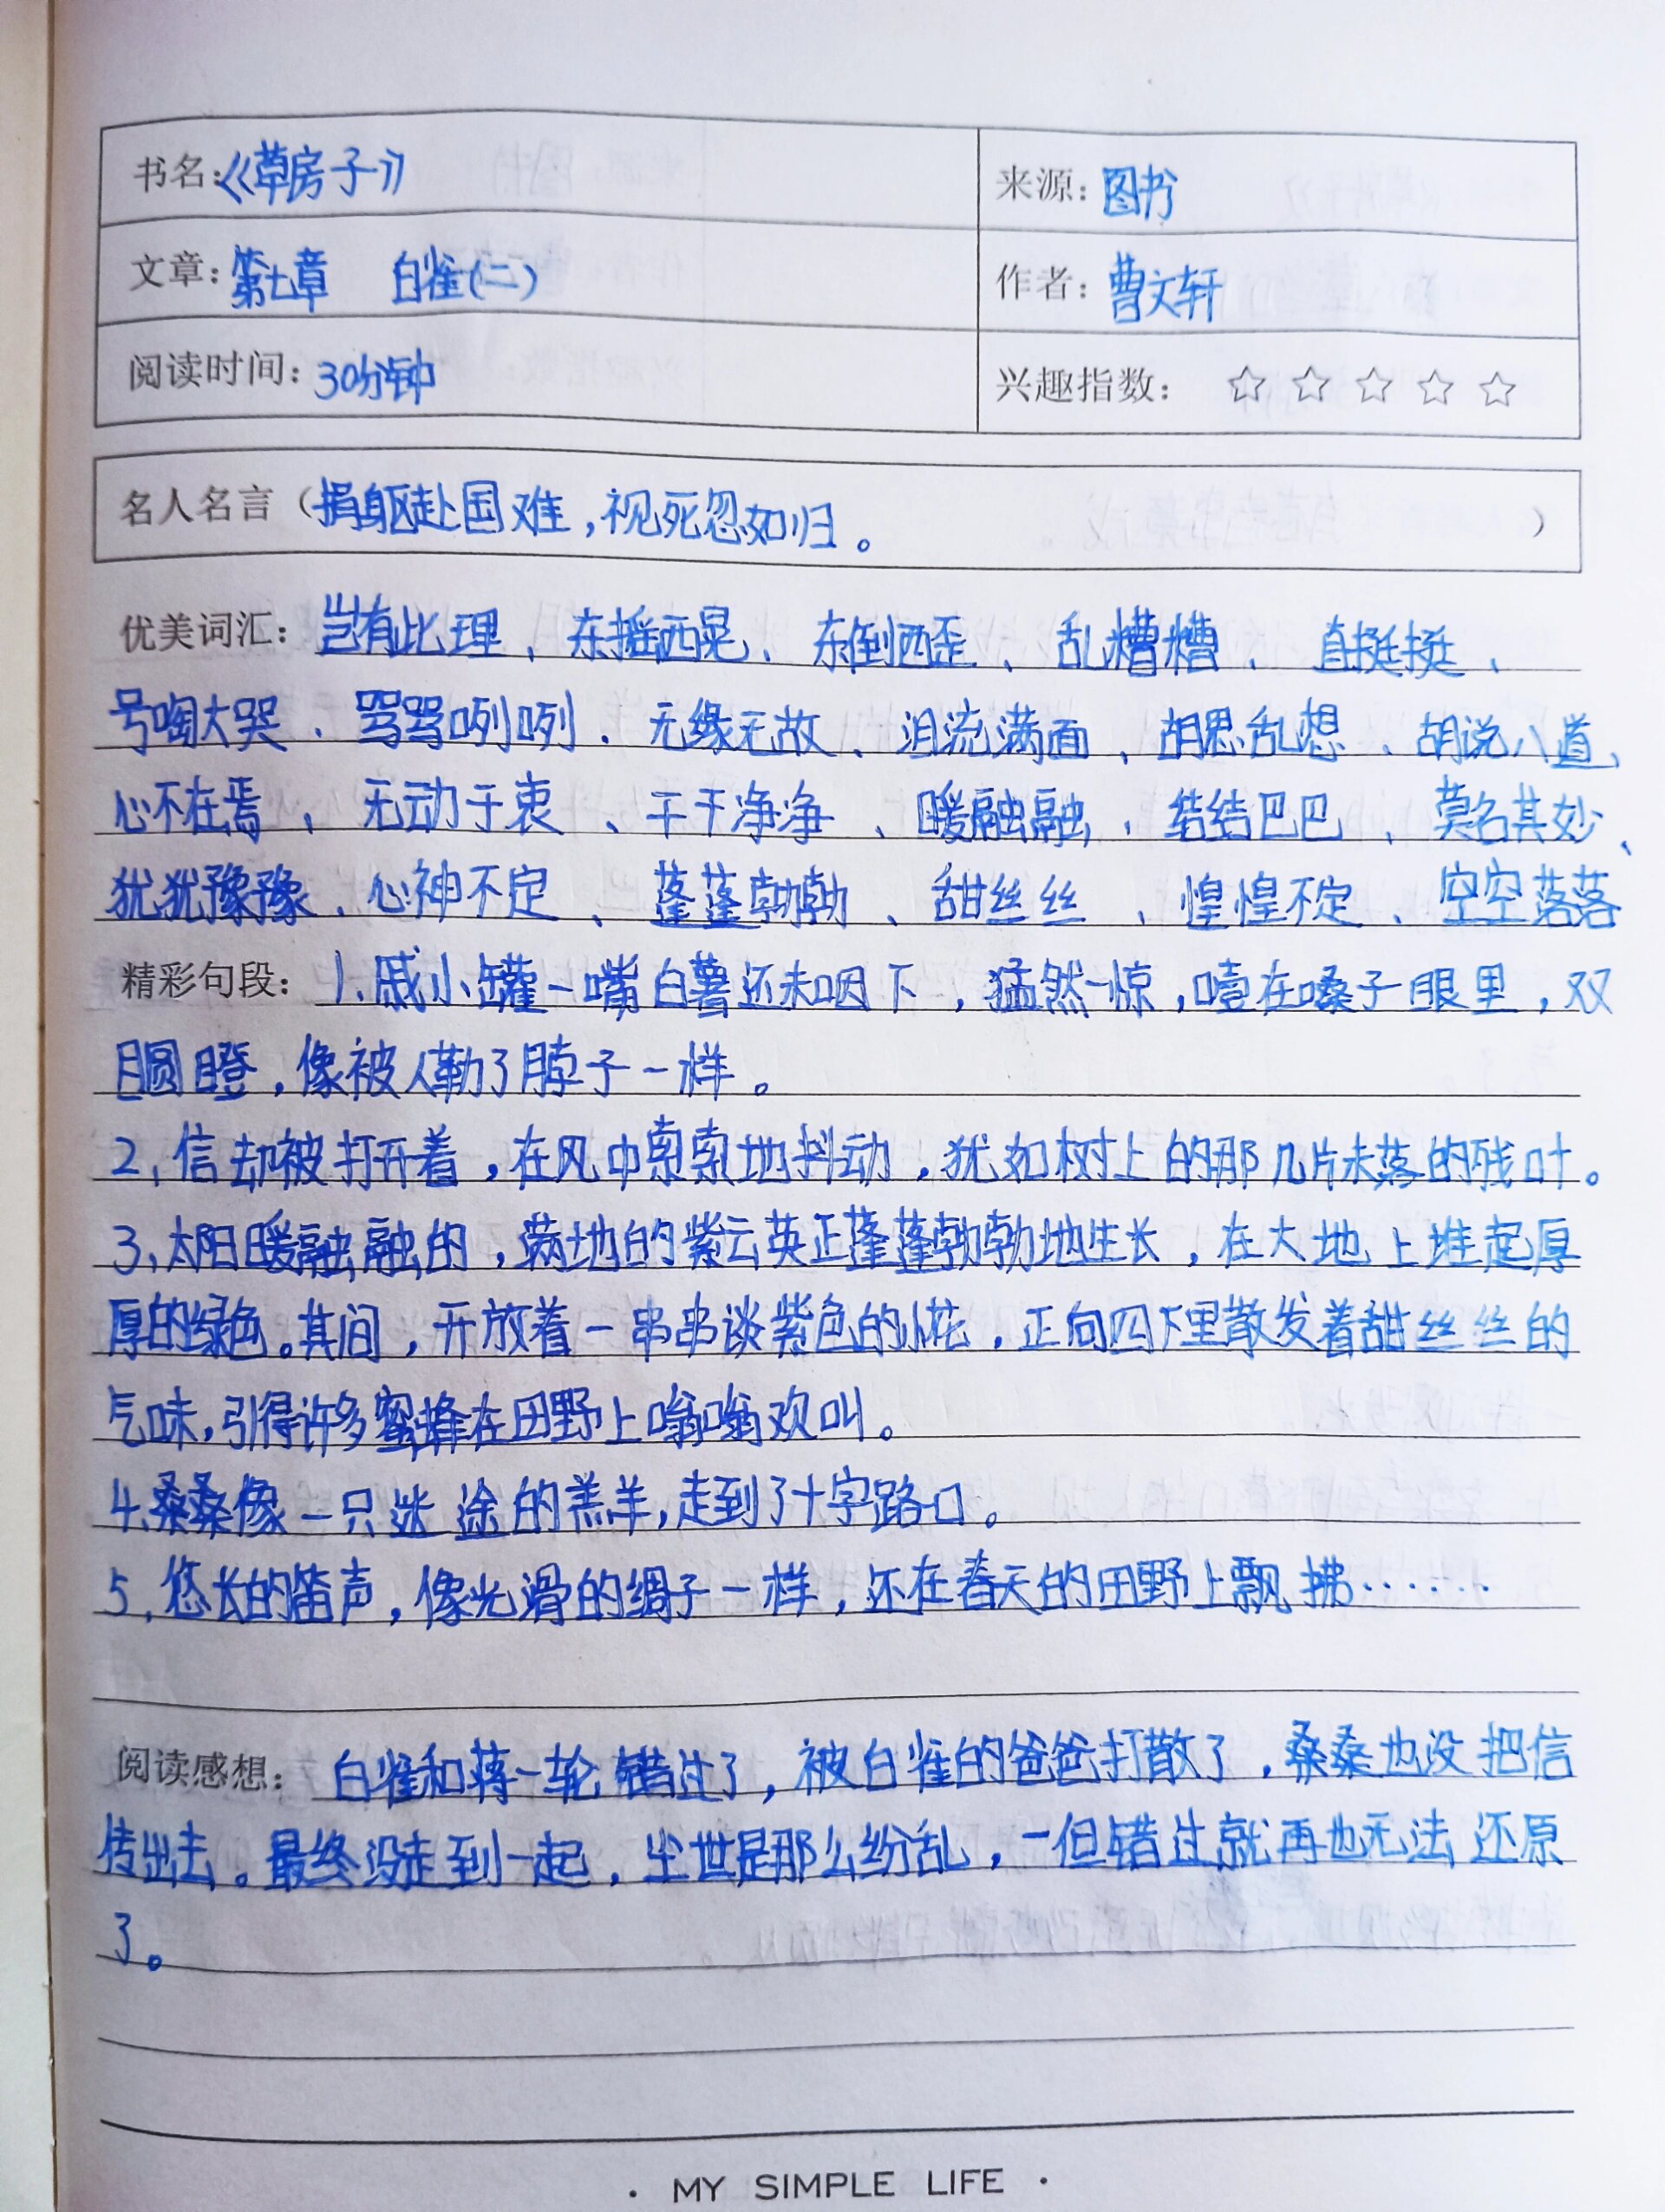 书名:《草房子》 来源:图书
文章:第七章 白雀(二) 作者:曹文轩
阅读时间:30分钟 兴趣指数: ☆ ☆ ☆ ☆ ☆
名人名言(捐躯赴国难,视死忽如归。 )
优美词汇:岂有此理、东摇西晃、东倒西歪、乱糟糟、直挺挺、
号啕大哭、骂骂咧咧、无缘无故、泪流满面、胡思乱想、胡说八道、
心不在焉、无动于衷、干干净净、暖融融、结结巴巴、莫名其妙、
犹犹豫豫、心神不定、蓬蓬勃勃、甜丝丝、惶惶不定、空空落落
精彩句段:1、戚小罐一嘴白薯还未咽下,猛然一惊,噎在嗓子眼里,双
目圆瞪,像被人勒了脖子一样。
2、信却被打开着,在风中索索地抖动,犹如树上的那几片未落的残叶。
3、太阳暖融融的,满地的紫云英正蓬蓬勃勃地生长,在大地上堆起厚
厚的绿色。其间,开放着一串串谈紫色的小花,正向四下里散发着甜丝丝的
气味,引得许多蜜蜂在田野上嗡嗡欢叫。
4、桑桑像一只迷途的羔羊,走到了十字路口。
5、悠长的笛声,像光滑的绸子一样,还在春天的田野上飘拂……
阅读感想:白雀和蒋一轮错过了,被白雀的爸爸打散了,桑桑也没把信
传出去。最终没走到一起,尘世是那么纷乱,一但错过就再也无法还原
了。
· MY SIMPLE LIFE ·